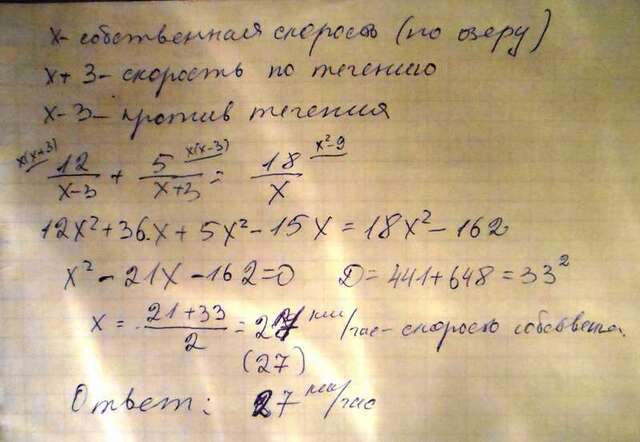 x - собственная скорость (по озеру)
x + 3 - скорость по течению
x - 3 - против течения
x(x+3) 12/(x-3) + x(x-3) 5/(x+3) = x²-9 18/x
12x² + 36x + 5x² - 15x = 18x² - 162
x² - 21x - 162 = 0 D = 441 + 648 = 33²
x = (21+33)/2 = 27 км/час - скорость собственна.
(27)
Ответ: 27 км/час